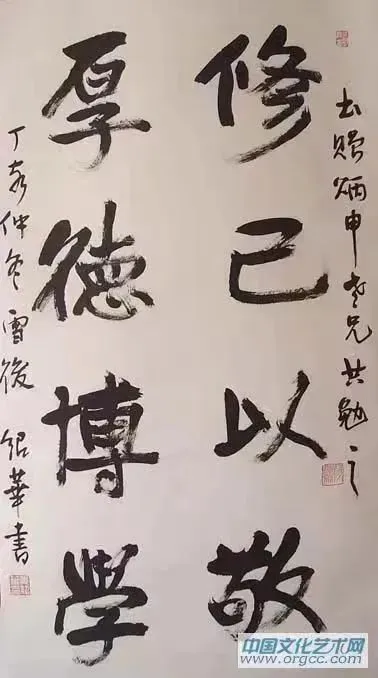 书赠炳申老兄共勉之
修己以敬
厚德博学
丁亥仲冬雪後 绍華书
中国文化艺术网
www.orgcc.com